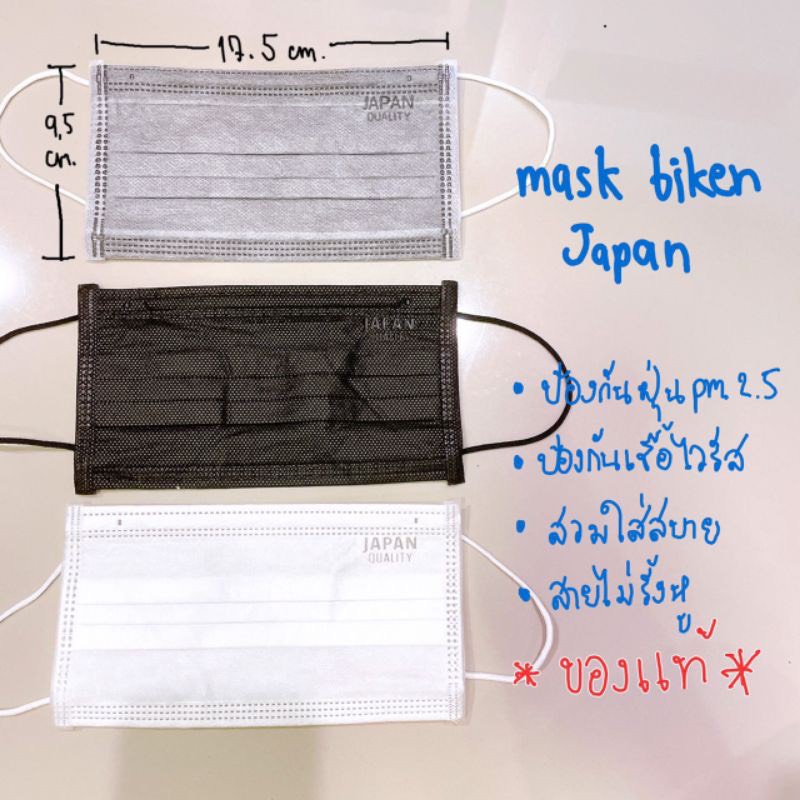 17.5 cm.
9,5
cm.
JAPAN
QUALITY
mask biken
Japan
JAPAN
QUALITY
• ป้องกันฝุ่น pm 2.5
• ป้องกันเชื้อไวรัส
• สวมใส่สบาย
• สายไม่รั้งหู
JAPAN
QUALITY
* ของแท้ *